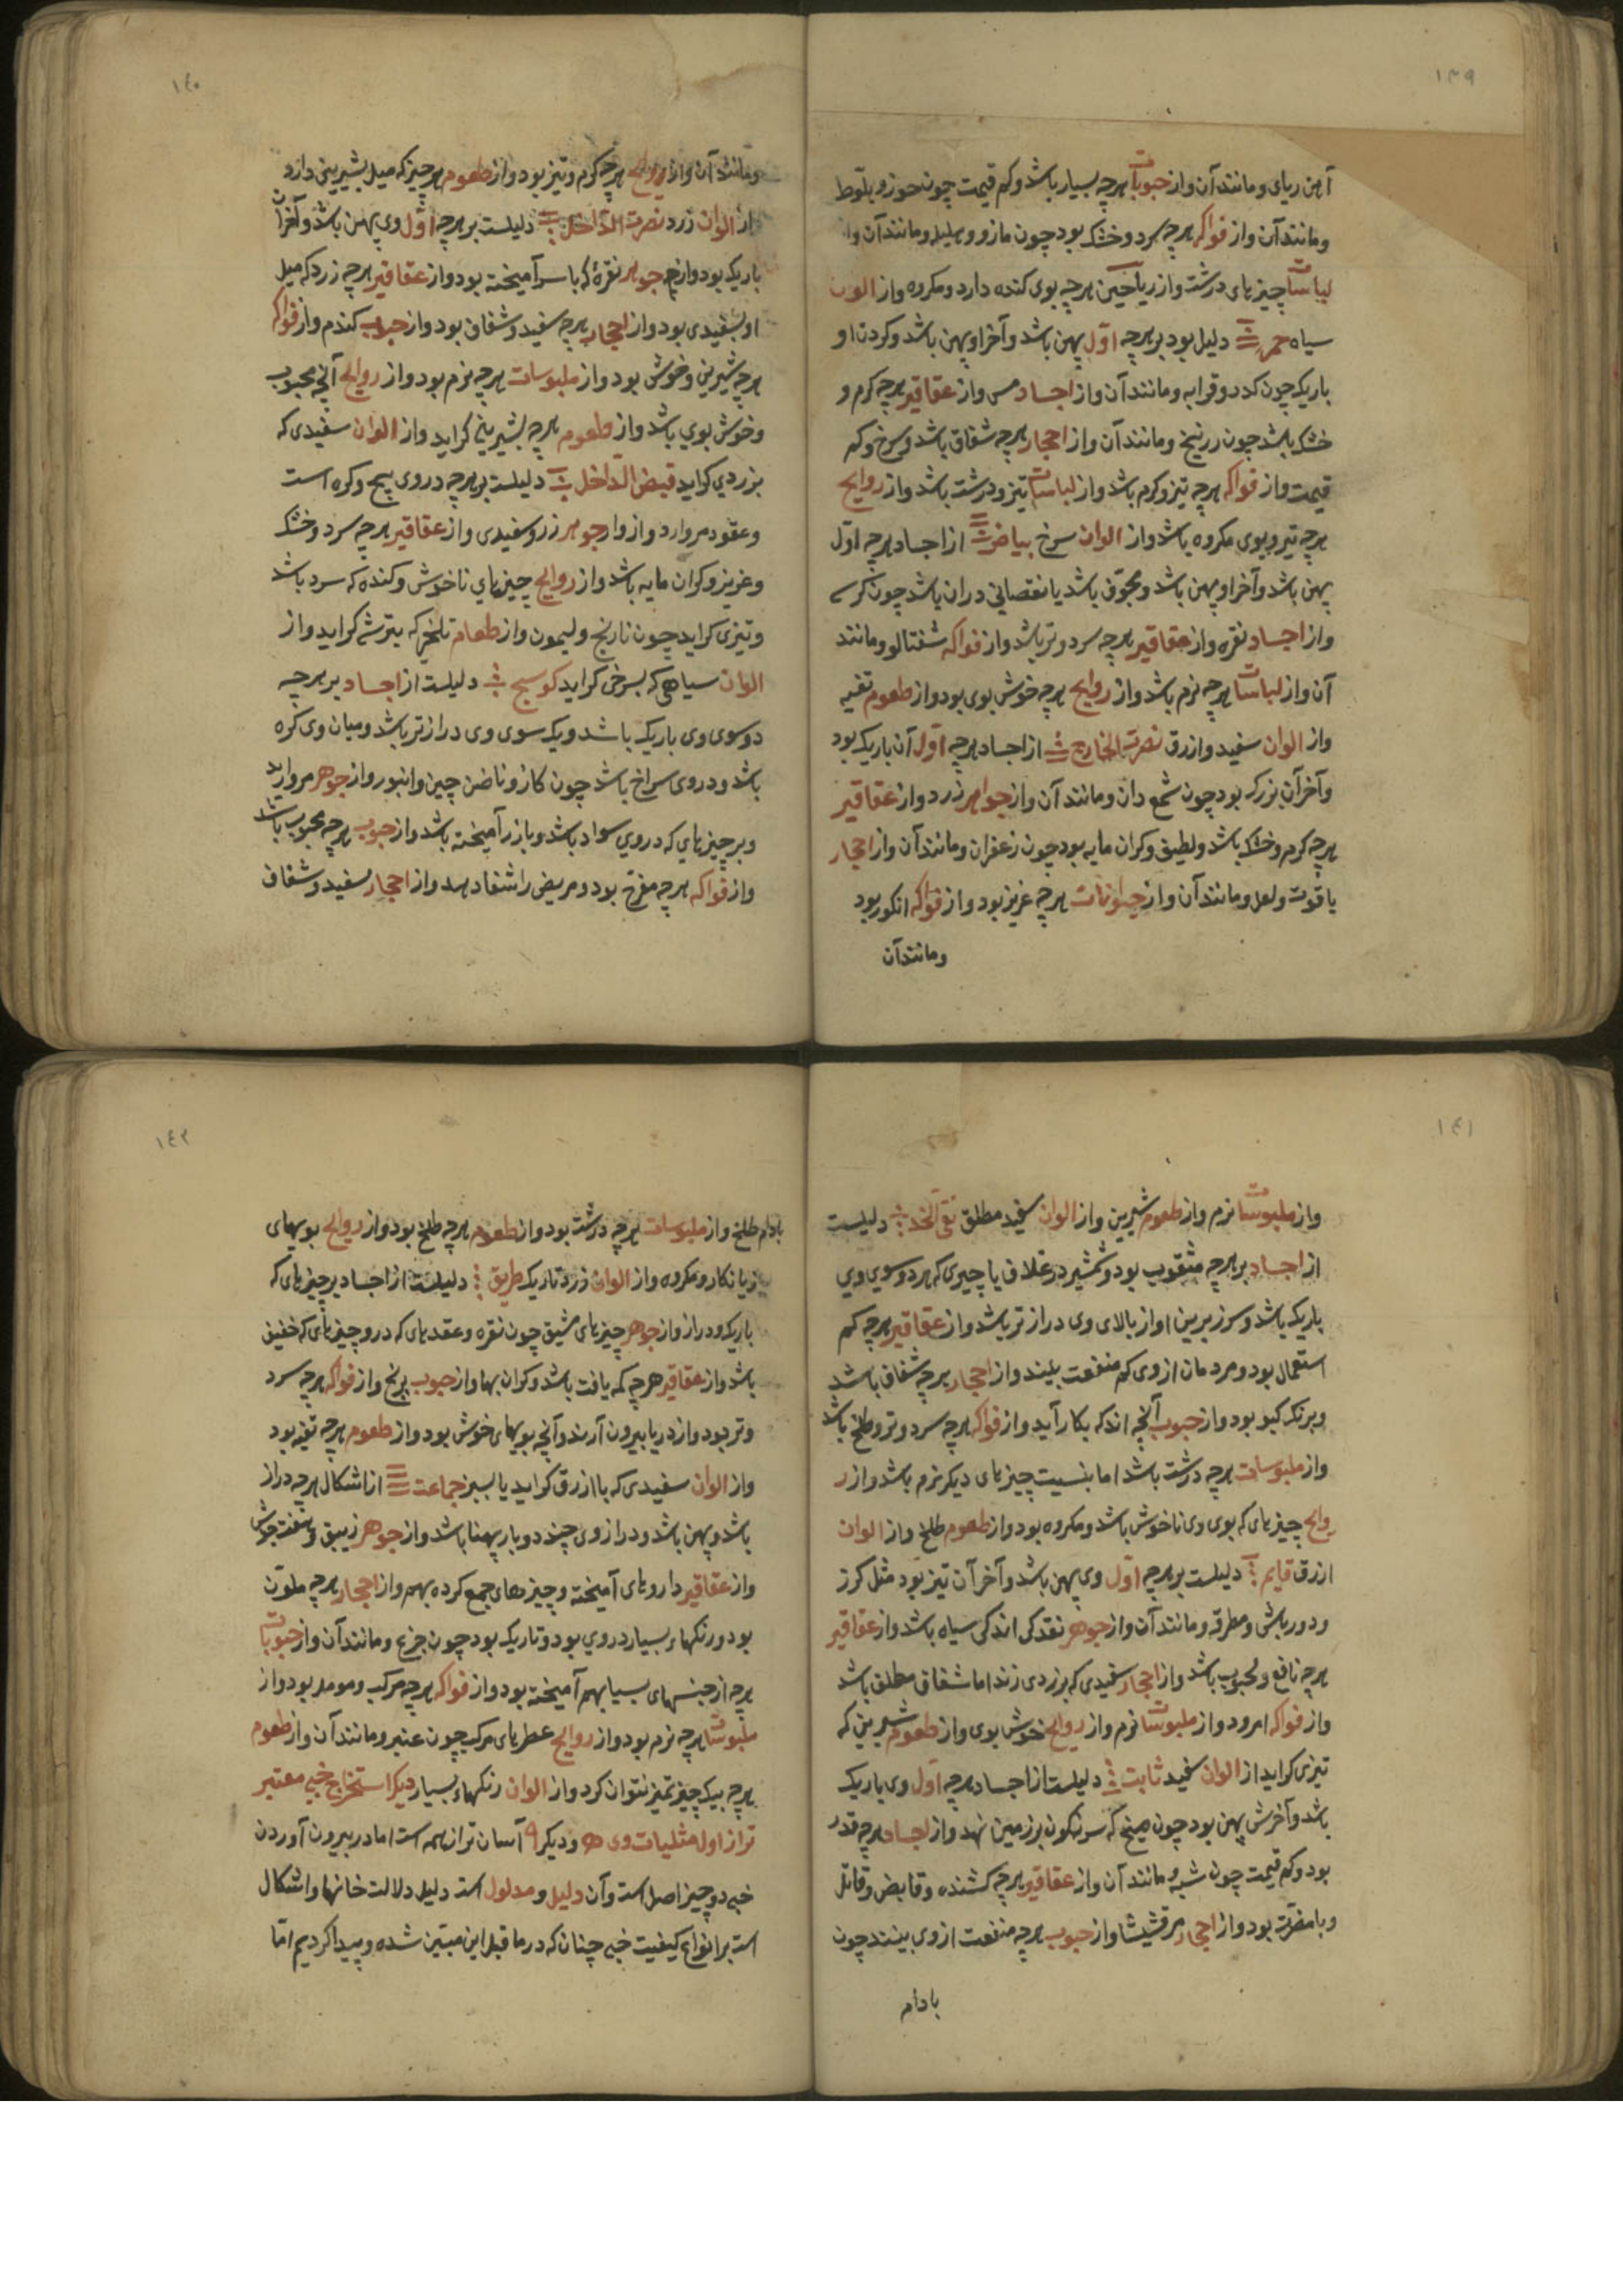 ١٣٩
آهن ربای و مانند آن و از حبوبات هرچه بسیار باشد و کم قیمت چون جوز و بلوط
و مانند آن و از فواکه هرچه سرد و خشک بود چون مازو و هلیله و مانند آن و از
لباسات چیزهای درشت و از ریاحین هرچه بوی کنده دارد و مکروه و از الوان
سیاه حمره دلیل بود بر هرچه اوّل پهن باشد و آخر او پهن باشد و کردن او
باریک چون کدو و قرابه و مانند آن و از اجساد مس و از عقاقیر هرچه کرم و
خشک باشد چون زرنیخ و مانند آن و از احجار هرچه شفاق باشد و سرخ و کم
قیمت و از فواکه هرچه تیز و کرم باشد و از لباسات تیز و درشت باشد و از روایح
هرچه تیز و بوی مکروه باشد و از الوان سرخ بیاض از اجساد هرچه اوّل
پهن باشد و آخر او پهن باشد و مجوّف باشد یا نقصانی در ان باشد چون
و از اجساد نقره و از عقاقیر هرچه سرد و تر باشد و از فواکه شفتالو و مانند
آن و از لباسات هرچه نرم باشد و از روایح هرچه خوش بوی بود و از طعوم تفیه
و از الوان سفید و ازرق نصرت الخارج از اجساد هرچه اوّل آن باریک بود
و آخر آن بزرک بود چون شمع دان و مانند آن و از جواهر زرد و از عقاقیر
هرچه کرم و خشک باشد و لطیف و کران مایه بود چون زعفران و مانند آن و از احجار
یاقوت و لعل و مانند آن و از حیوانات هرچه عزیز بود و از فواکه انکور بود
و مانند آن
١٤٠
و مانند آن و از روایح هرچه کرم و تیز بود و از طعوم هرچیز که میل بشیرینی دارد
از الوان زرد نصرت الدّاخل دلیلست بر هرچه اوّل وی پهن باشد و آخر آن
باریک بود و از جوهر نقرۀ که با سرا آمیخته بود و از عقاقیر هرچه زرد که میل
او بسفیدی بود و از احجار هرچه سفید و شفاق بود و از حبوب کندم و از فواکه
هرچه شیرین و خوش بود و از ملبوسات هرچه نرم بود و از روایح آنچه محبوب
و خوش بوی باشد و از طعوم هرچه بشیرینی کراید و از الوان سفیدی که
بزردی کراید قبض الدّاخل دلیلست بر هرچه در وی پیچ و کره است
و عقود مروارد و از وار جوهر زر و سفیدی و از عقاقیر هرچه سرد و خشک
و عزیز و کران مایه باشد و از روایح چیزهای ناخوش و کنده که سرد باشد
و تیزی کراید چون نارنج و لیمون و از طعام تلخی که بترشی کراید و از
الوان سیاهی که بسرخی کراید کوسج دلیلست از اجساد بر هرچه
دو سوی وی باریک باشد و یک سوی وی دراز تر باشد و میان وی کره
باشد و در وی سراخ باشد چون کاز و ناخن چین و انبور و از جوهر مروارید
و بر چیزهای که در وی سواد باشد و با زر آمیخته باشد و از حبوب هرچه محبوب باشد
و از فواکه هرچه مفرّح بود و مریض را شفا دهد و از احجار سفید و شفاف
١٤١
و از ملبوسات نرم و از طعوم شیرین و از الوان سفید مطلق نقی الخد دلیلست
از اجساد بر هرچه مثقوب بود و شمشیر در غلاف یا چیزی که هر دو سوی وی
باریک باشد و سر زیرین او از بالای وی دراز تر باشد و از عقاقیر هرچه کم
استعمال بود و مردمان از وی کم منفعت بیند و از احجار هرچه شفاق باشد
و برنک کبو بود و از حبوب آنچه اندک بکار آید و از فواکه هرچه سرد و تر و طلخ باشد
و از ملبوسات هرچه درشت باشد اما بنسبت چیزهای دیکر نرم باشد و از ر
وایح چیزهای که بوی وی ناخوش باشد و مکروه بود و از طعوم طلخ و از الوان
ازرق قایم دلیلست بر هرچه اوّل وی پهن باشد و آخر آن تیز بود مثل کرز
و دورباش و مطرقه و مانند آن و از جوهر نقد کی اندکی سیاه باشد و از عقاقیر
هرچه نافع و محبوب باشد و از احجار سفیدی که بزردی زند اما شفاق مطلق باشد
و از فواکه امرود و از ملبوسات نرم و از روایح خوش بوی و از طعوم شیرین که
تیزی کراید از الوان سفید ثابت دلیلست از اجساد هرچه اوّل وی باریک
باشد و آخرش پهن بود چون میخ که سرنکون بر زمین نهد و از اجساد هرچه قدر
بود و کم قیمت چون شبه و مانند آن و از عقاقیر هرچه کشنده و قابض و قاتل
و با مضرّت بود و از احجار مرقشیشا و از حبوب هرچه منفعت از وی بینند چون
بادام
١٤٢
بادام طلخ و از ملبوسات هرچه درشت بود و از طعوم هرچه طلخ بود و از روایح بویهای
زیانکار و مکروه و از الوان زرد تاریک طریق دلیلست از اجساد بر چیزهای که
باریک و دراز و از جوهر چیزهای چون نقره و عقدهای که در و چیزهای که خفیف
باشد و از عقاقیر هرچه کم یافت باشد و کران بها و از حبوب برنج و از فواکه هرچه سرد
و تر بود و از دریا بیرون آرند و آنچه بویهای خوش بود و از طعوم هرچه تفیه بود
و از الوان سفیدی که با ازرق کراید یا بسبز جماعت از اشکال هرچه دراز
باشد و پهن باشد و درازوی چند دو بار پهنا باشد و از جوهر زیبق و هفت جوش
و از عقاقیر داروهای آمیخته و چیزهای جمع کرده بهم و از احجار هرچه ملوّن
بود و رنکهاء بسیار در وی بود و تاریک بود چون جزع و مانند آن و از حبوبات
هرچه از جنسهای بسیا بهم آمیخته بود و از فواکه هرچه مرکب و مومد بود و از
ملبوسات هرچه نرم بود و از روایح عطرهای مرکب چون عنبر و مانند آن و از طعوم
هرچه بیک چیز تمیز نتوان کرد و از الوان رنکهاء بسیار دیکر استخراج خبی معتبر
تر از اول مثلیات وی و دیکر آسان تر از همه است اما در بیرون آوردن
خبی دو چیز اصل است و آن دلیل و مدلول است دلیل دلالت خانها و اشکال
است بر انواع کیفیت خبی چنان که در ما قبل این مبیّن شده و پیدا کردیم امّا